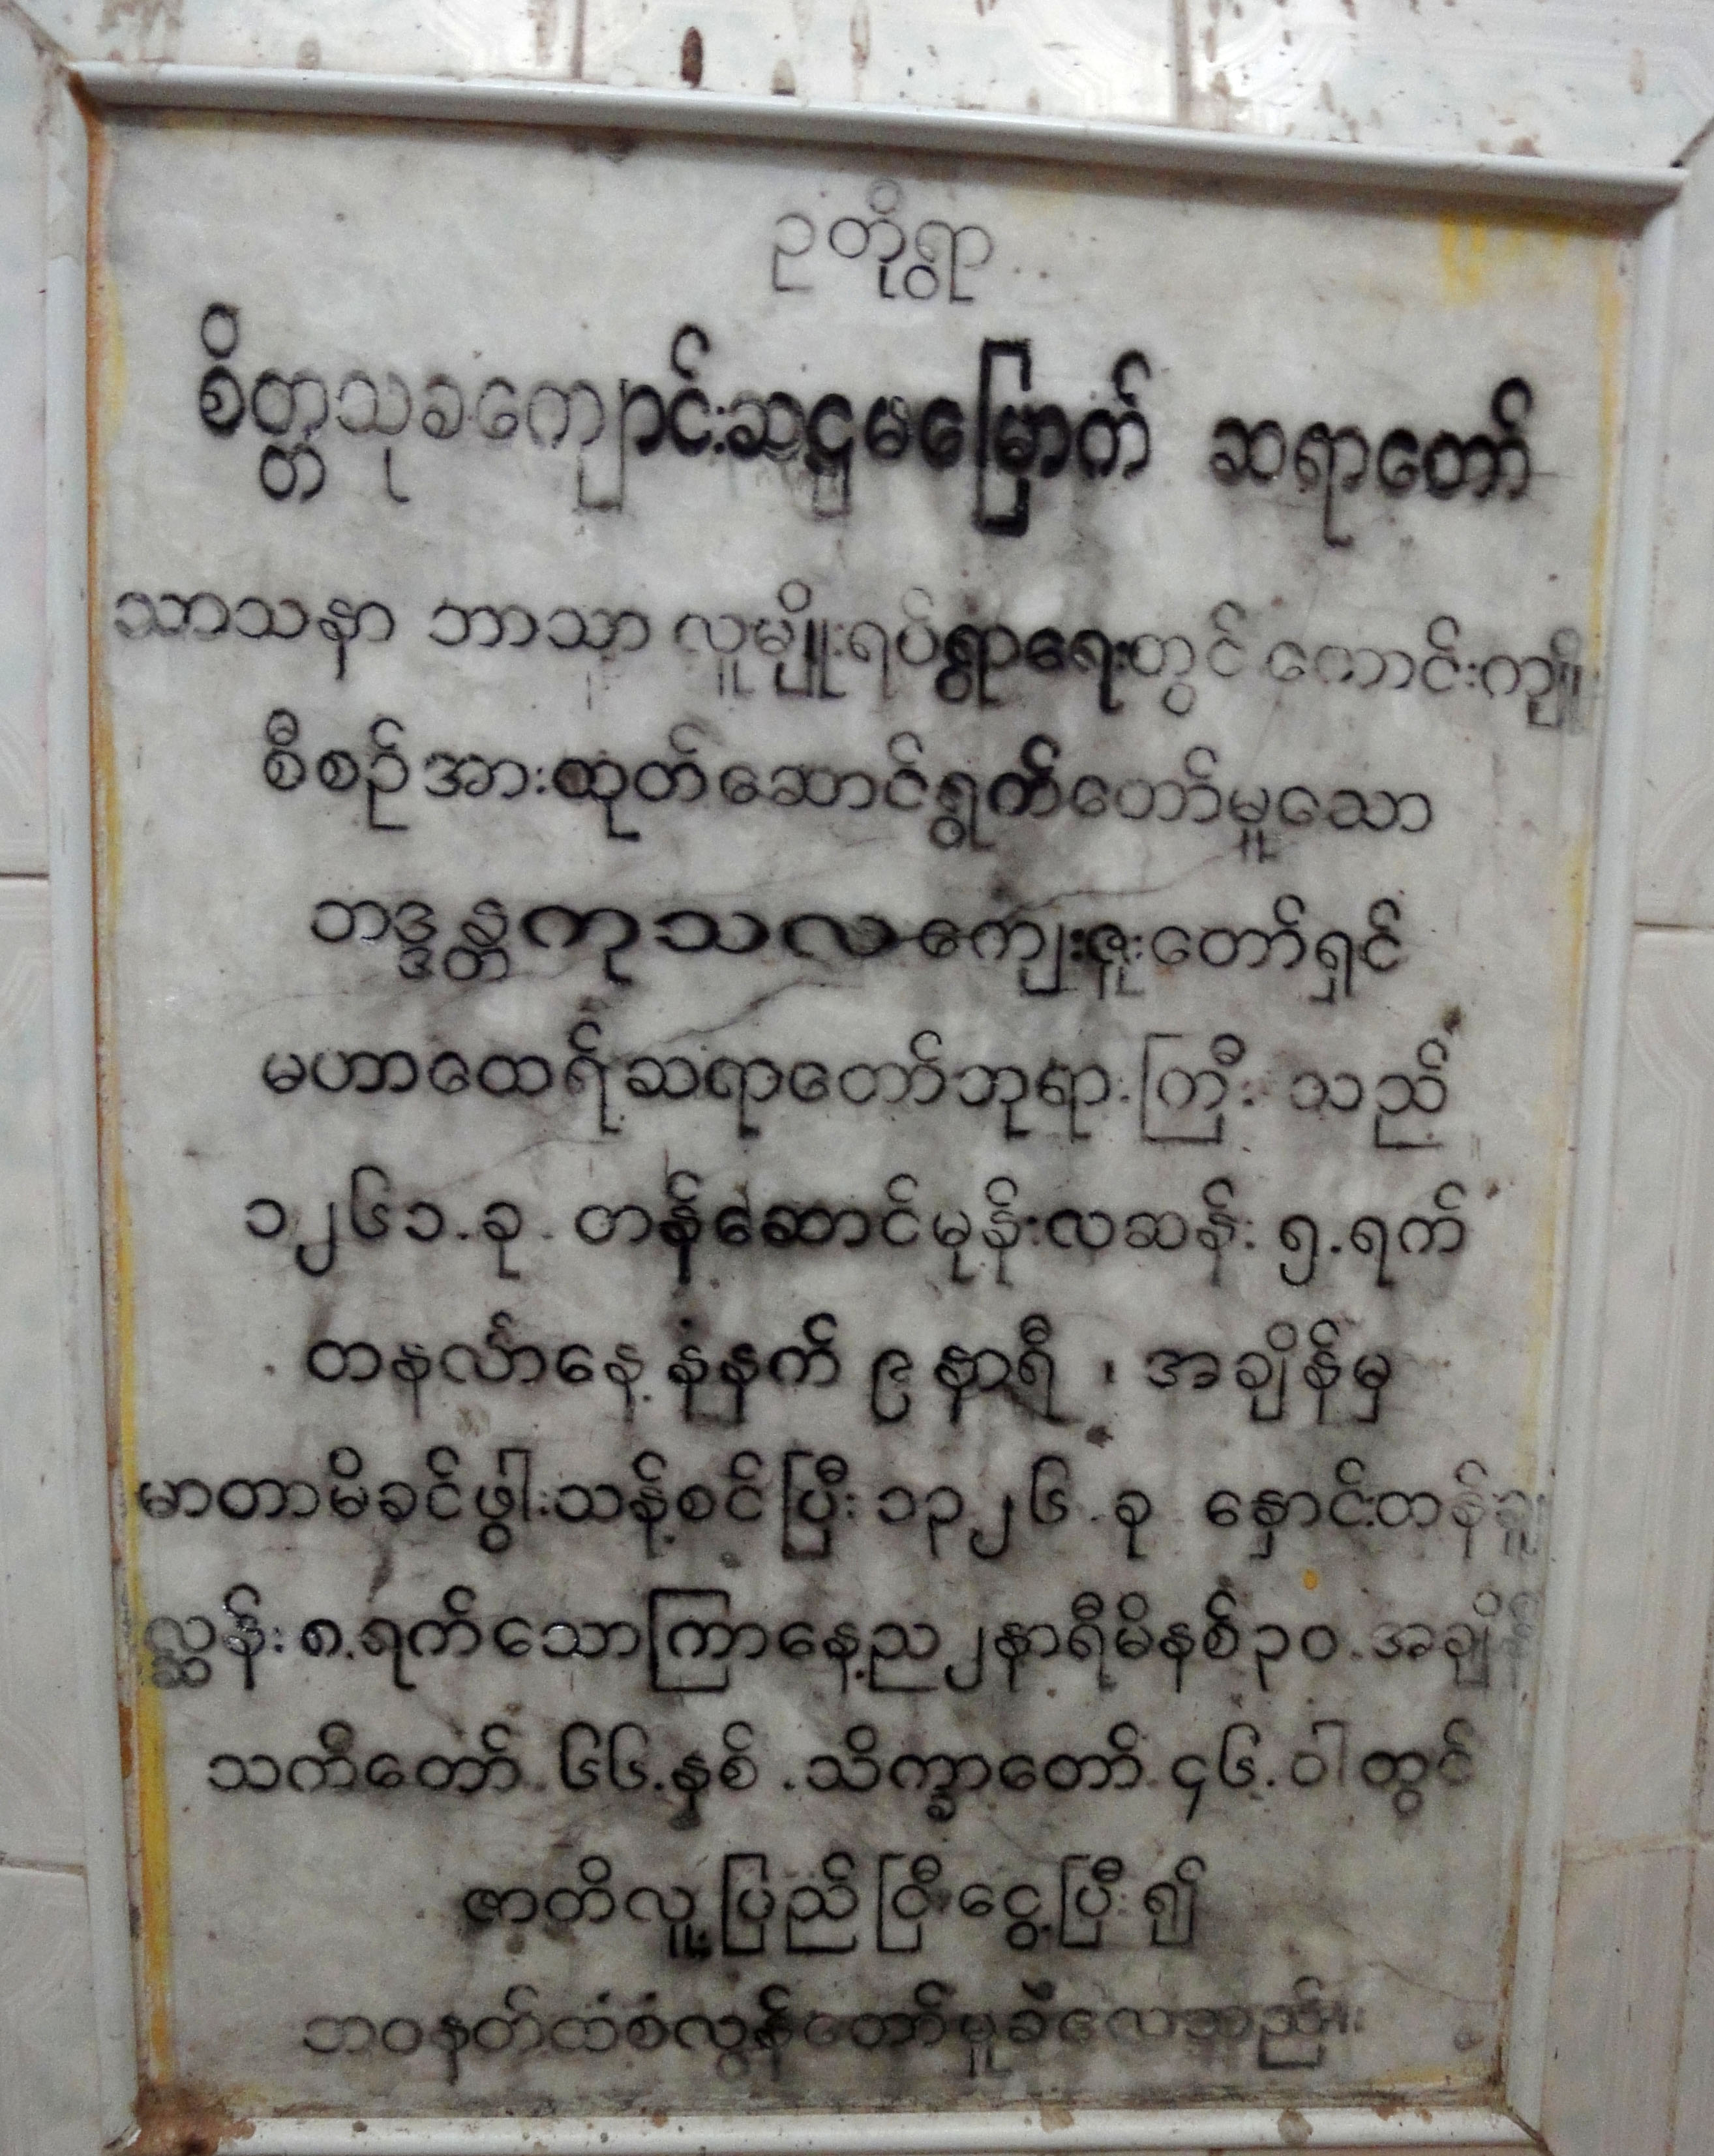 ဉတိုရွာ
စိတ္တသုခကျောင်းဆဋ္ဌမမြှောက် ဆရာတော်
သာသနာ ဘာသာ လူမျိုးရပ်ရွာရေးတွင် ကောင်းကျိုး
စီစဉ်အားထုတ်ဆောင်ရွက်တော်မူသော
ဘဒ္ဒန္တကုသလကျေးဇူးတော်ရှင်
မဟာထေရ်ဆရာတော်ဘုရားကြီး သည်
၁၂၆၁.ခု. တန်ဆောင်မုန်းလဆန်း ၅.ရက်
တနင်္လာနေ့ နံနက် ၉ နာရီ ၊ အချိန်မှ
မာတာမိခင်ဖွါးသန့်စင်ပြီး ၁၃၂၆.ခု နှောင်းတန်ခူး
လ္ဆန်း ၈.ရက်သောကြာနေ့ည ၂နာရီမိနစ်၃၀.အချိန်
သက်တော်.၆၆.နှစ်.သိက္ခာတော်.၄၆.ဝါတွင်
ဇာတိလူ့ပြည်ငြီးငွေ့ပြီး၍
ဘဝနတ်ထံစံလွန်တော်မူခဲ့လေသည်။